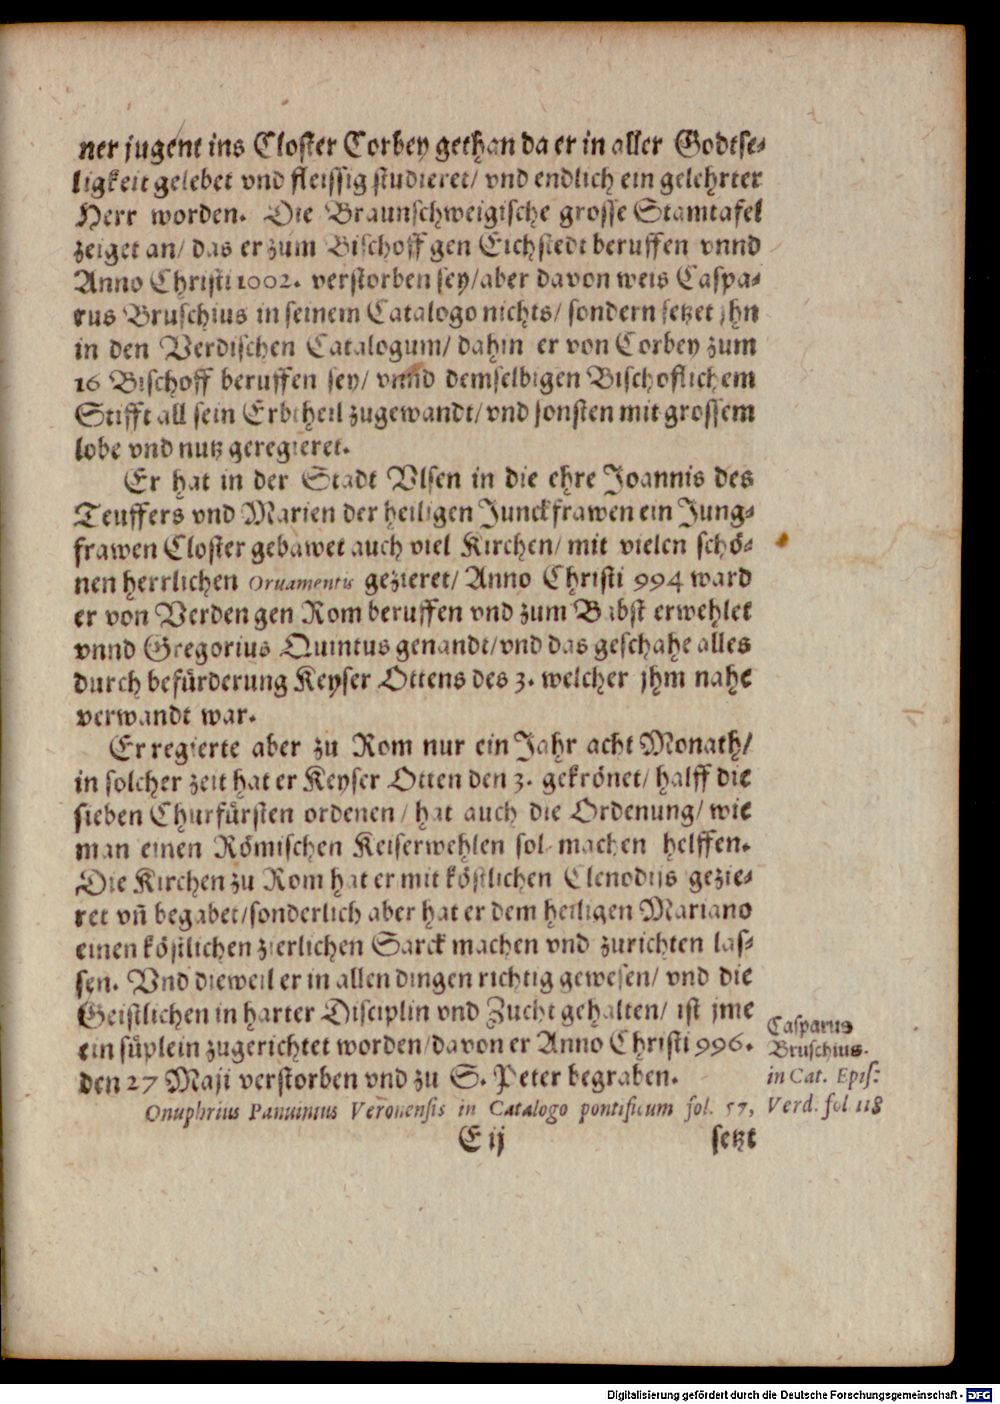 ner jugent ins Closter Corbey gethan da er in aller Godtse-
ligkeit gelebet vnd fleissig studieret/ vnd endlich ein gelehrter
Herr worden. Die Braunschweigische grosse Stamtafel
zeiget an/ das er zum Bischoff gen Eichstedt beruffen vnnd
Anno Christi 1002. verstorben sey/ aber davon weis Caspa-
rus Bruschius in seinem Catalogo nichts/ sondern setzet jhn
in den Verdischen Catalogum/ dahin er von Corbey zum
16 Bischoff beruffen sey/ vnnd demselbigen Bischoflichem
Stifft all sein Erbtheil zugewandt/ vnd sonsten mit grossem
lobe vnd nutz geregieret.
Er hat in der Stadt Vlsen in die ehre Joannis des
Teuffers vnd Marien der heiligen Junckfrawen ein Jung-
frawen Closter gebawet auch viel Kirchen/ mit vielen schö-
nen herrlichen Ornamentis gezieret/ Anno Christi 994 ward
er von Verden gen Rom beruffen vnd zum Babst erwehlet
vnnd Gregorius Quintus genandt/ vnd das geschahe alles
durch befürderung Keyser Ottens des 3. welcher jhm nahe
verwandt war.
Er regierte aber zu Rom nur ein Jahr acht Monath/
in solcher zeit hat er Keyser Otten den 3. gekrönet/ halff die
sieben Churfürsten ordenen/ hat auch die Ordenung/ wie
man einen Römischen Keiser wehlen sol machen helffen.
Die Kirchen zu Rom hat er mit köstlichen Clenodijs gezie-
ret vñ begabet/ sonderlich aber hat er dem heiligen Mariano
einen köstlichen zierlichen Sarck machen vnd zurichten las-
sen. Vnd dieweil er in allen dingen richtig gewesen/ vnd die
Geistlichen in harter Disciplin vnd Zucht gehalten/ ist jme
ein süplein zugerichtet worden/ davon er Anno Christi 996.
den 27 Maji verstorben vnd zu S. Peter begraben.
Casparus
Bruschius.
in Cat. Epis:
Verd. fol 118
Onuphrius Panuinius Veronensis in Catalogo pontificum fol. 57,
E ij
setzt
Digitalisierung gefördert durch die Deutsche Forschungsgemeinschaft - DFG